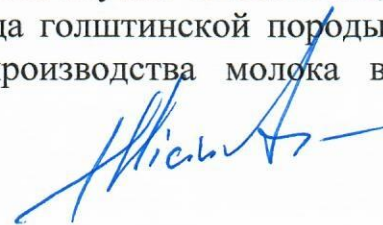 да голштинской породы
роизводства молока в